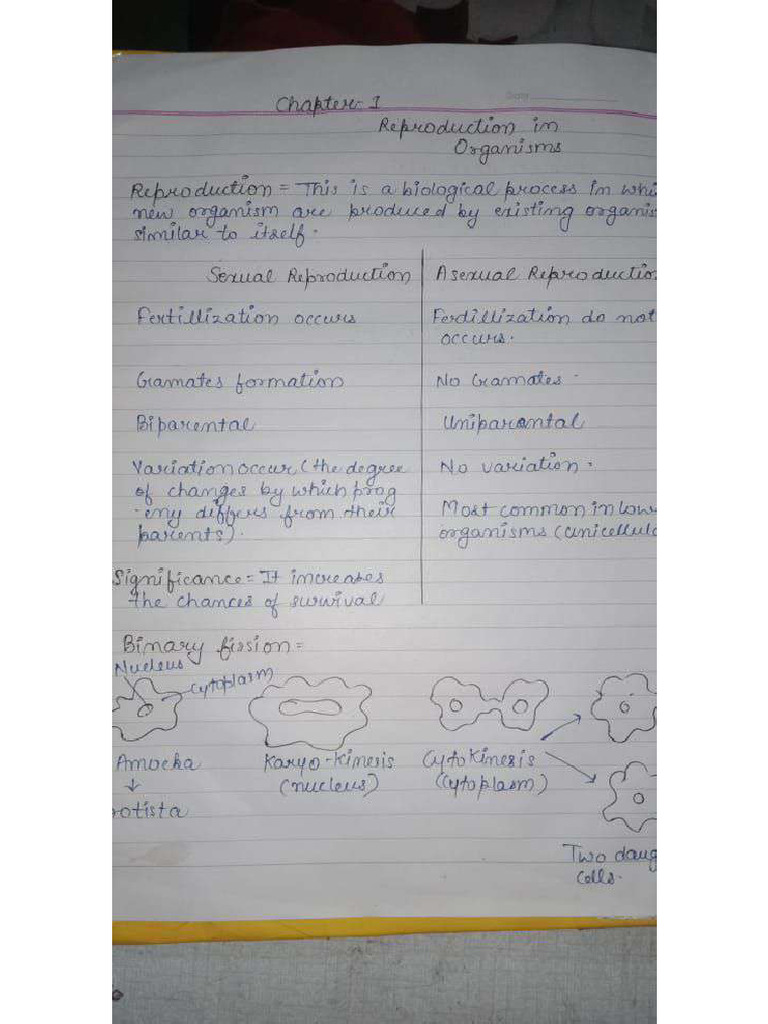 Chapter-1
Reproduction in
Organisms
Reproduction = This is a biological process in whi
new organism are produced by existing organis
similar to itself.
Sexual Reproduction
Asexual Reproductio
Fertillization occurs
Ferdillization do not
occurs.
Gramates formation
No Gramates.
Biparental
Uniparantal
Variation occur (the degree
of changes by which prog
-eny differs from their
parents).
No variation.
Most common in low
organisms (unicellula
Significance = It increases
the chances of survival
Binary fission =
Nucleus
Cytoplasm
Amoeba
↓
rotista
Karyo-kinesis
(nucleus)
Cytokinesis
(cytoplasm)
Two daug
cells.